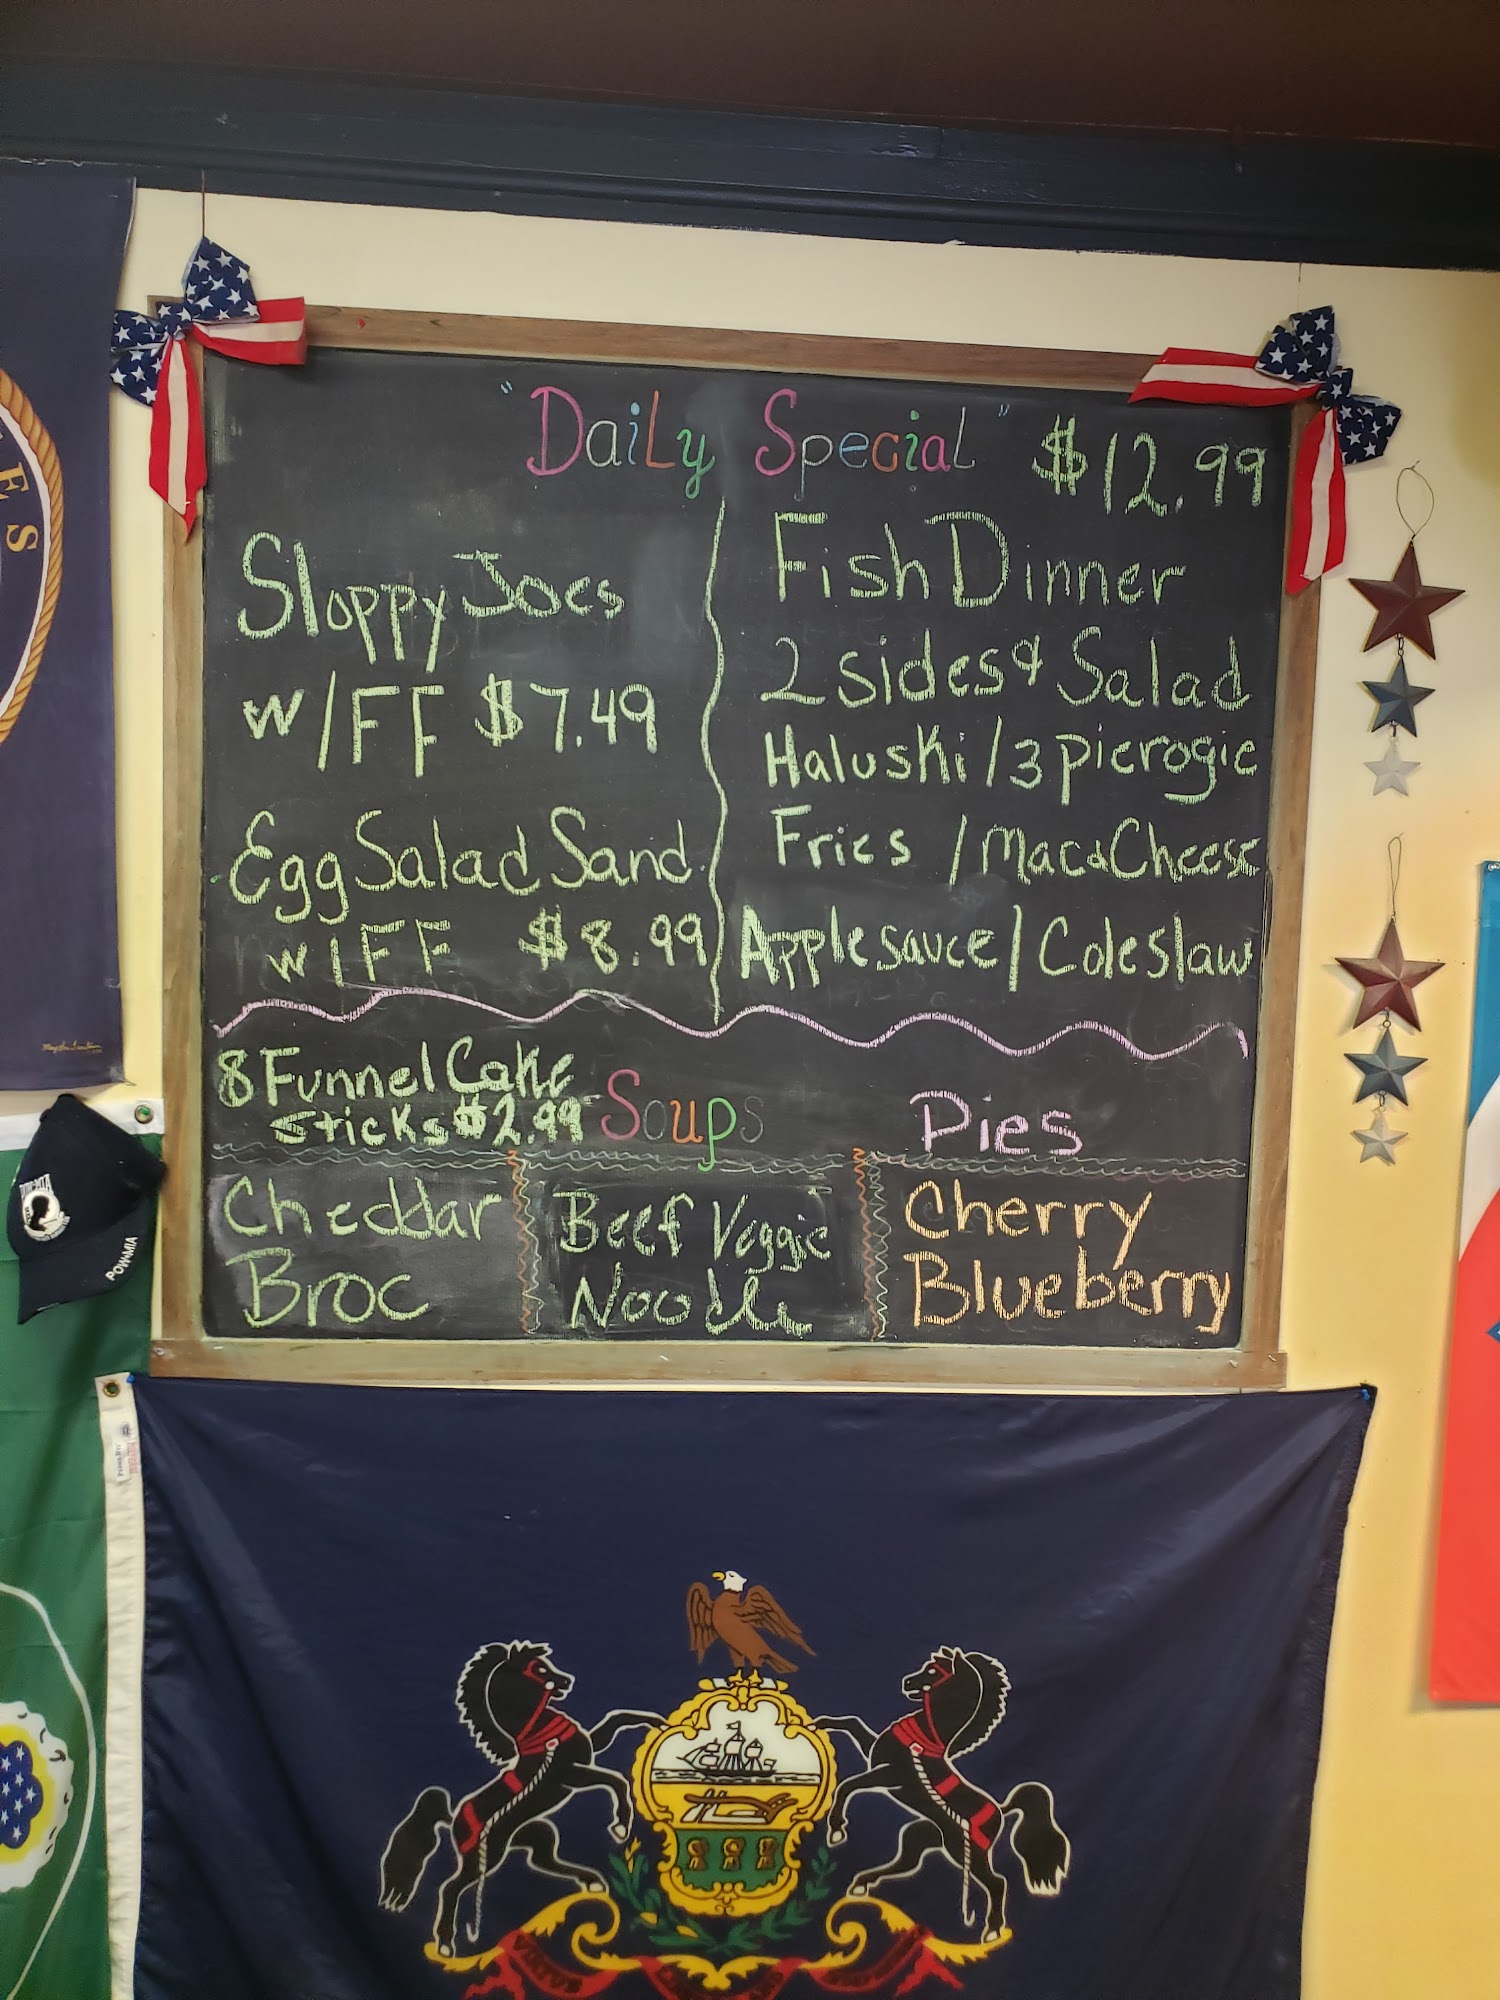 "Daily Special"
$12.99
Sloppy Joes
w/FF $7.49
Egg Salad Sand.
w/FF $8.99
Fish Dinner
2 sides & Salad
Haluski/3 pierogie
Fries / Mac & Cheese
Applesauce/Coleslaw
8 Funnel Cake
Sticks $2.99
Soups
Pies
Cheddar
Broc
Beef Veggie
Noodle
Cherry
Blueberry
POW-MIA
POW★MIA
ES
VIRTUE